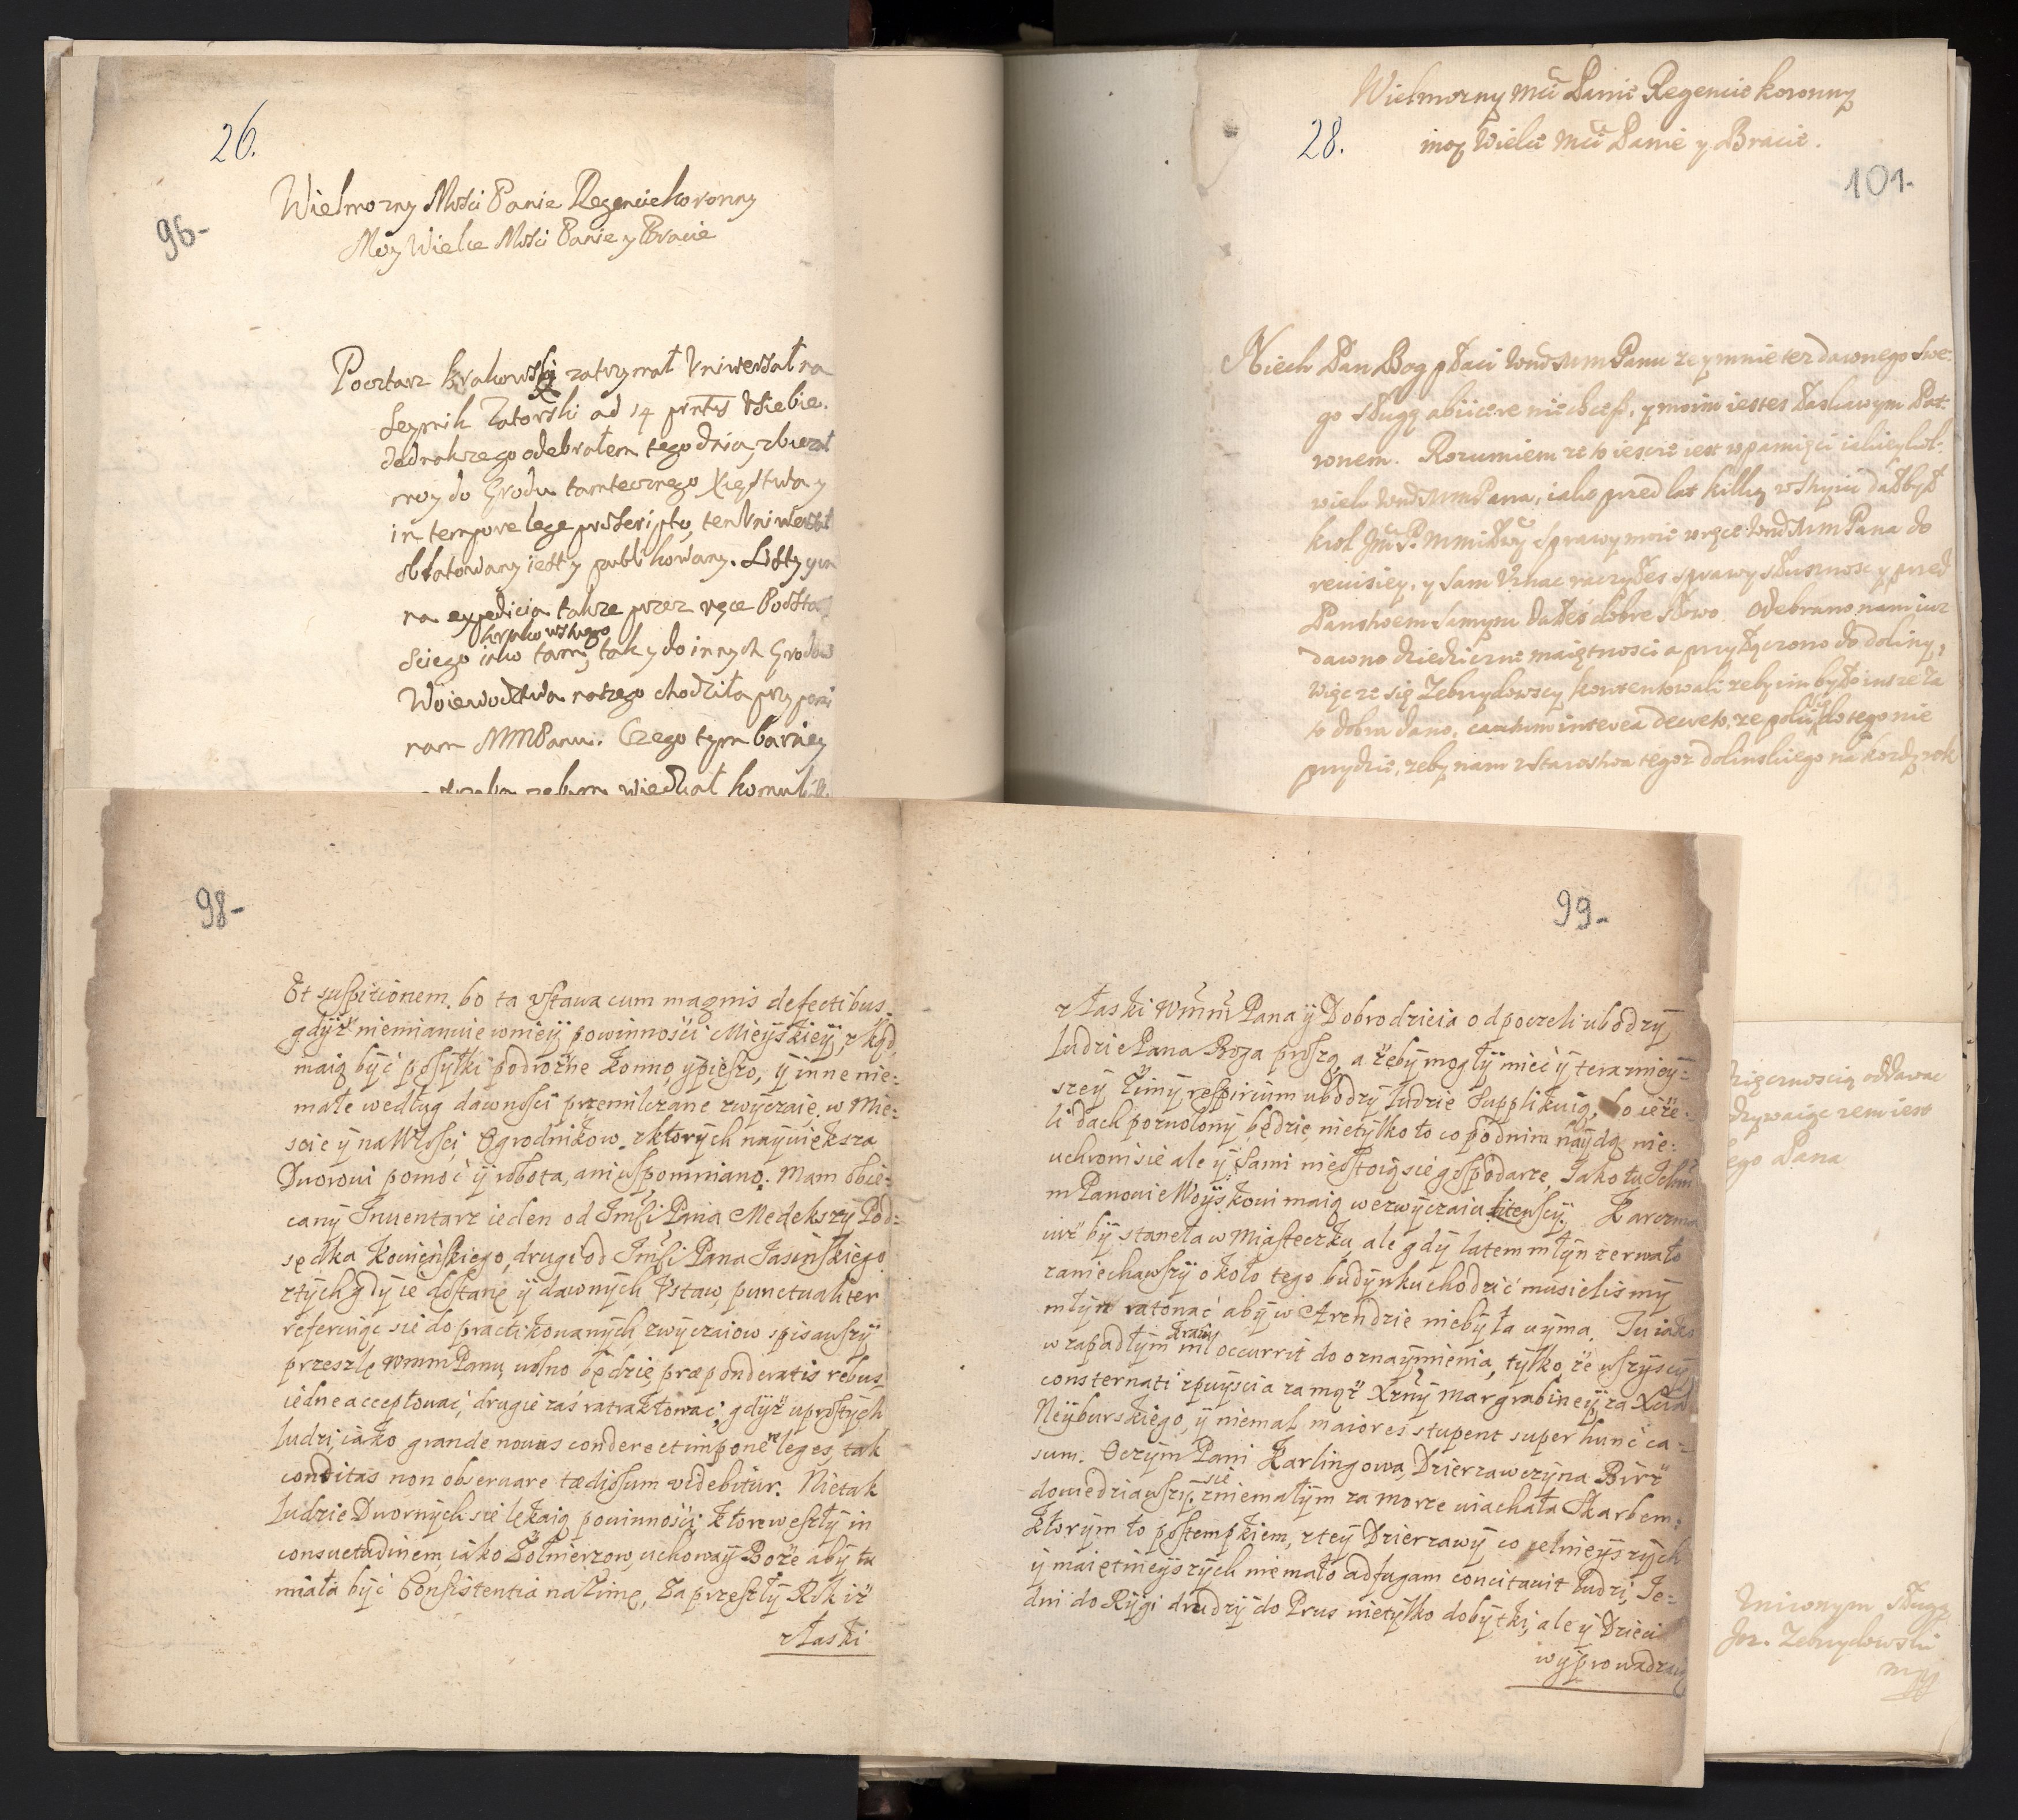 26.
96-
Wielmozny Mości Panie Regencie koronny
Moy Wielce Mości Panie y Bracie
Pocztarz krakowski zatrzymał Vniwersał na
Seymik Zatorski ad 14 prntis v siebie.
Jednakze go odebrałem tego dnia, zbierał
moy do Grodu tamtecznego Xięstwa y
in tempore lege proscripto, ten Vniwersał
oblatowany iest y publikowany. Listy
na expedicia takze przez ręce Poczta
krakowskiego
sciego iako tam, tak y do innych Grodow
Woiewodztwa naszego chodziła przy
nam MMPanu. Czego tym barziey
zebym wiedział komu
28.
Wielmozny Mći Panie Regencie koronny
moy Wielce Mći Panie y Bracie.
101-
Niech Pan Bog płaci WMMPanu ze y mnie tez dawnego swe:
go sługę abiicere nie chcesz, y moim iestes łaskawym Pat:
ronem. Rozumiem ze to iescze iest w pamięci iakieykol:
wiek WMMPana, iako przed lat kilką w Stryiu dał był
krol Jmć P. M. Miłćwy sprawy moie w ręce WMMPana do
reuisiey, y sam Vznac raczyłes sprawy słusznosc y przed
Panstwem samym dałes dobre słowo. Odebrano nam iuz
dawno dziedziczne maiętnosci a przyłączono do doliny,
więc ze się Zebrzydowscy kontentowali zeby im było insze za
to dobra dano, cautum interea decreto, ze poki do tego nie
przydzie, zeby nam z Starostwa tegoz dolinskiego na kozdy rok
98-
Et suspicionem. bo ta vstawa cum magnis defectibus
gdyż niemianuie w niey powinności Mieyskiey, z kąd
maią być posyłki podrożne konno, y pieszo, y inne nie:
małe według dawności przemilczane zwyczaie, w Mie:
scie y na Włości, Ogrodnikow z ktorych naywiększa
Dworowi pomoc y robota, ani wspomniano. Mam obie:
cany Inuentarz ieden od Jmści Pana Medekszy Pod:
sędka Kowieńskiego, drugi od Jmści Pana Jasińskiego
z tych gdy ie dostanę y dawnych Vstaw, punctualiter
referuiąc sie do practikowanych zwyczaiow spisawszy
przeszlę WMMPanu, wolno będzie præponderatis rebus
iedne acceptować, drugie zaś ratraktować, gdyż u prostych
ludzi, iako grande nouas condere et imponere leges, tak
conditas non obseruare tædiosum videbitur. Nie tak
ludzie Dwornych sie lękaią powinności, ktore weszły in
consuetudinem, iako Zołnierzow, uchoway Boże aby tu
miała być Consistentia na Zimę, Za przeszły Rok iż
z łaski
99-
z łaski WMMPana y Dobrodzieia odpoczeli ubodzy
ludzie Pana Boga proszą, a żeby mogły mieć y terazniey:
szey Zimy, respirium ubodzy ludzie supplikuią, bo ieże:
li dach pozwolony będzie, nie tylko to co pod nim naydą nie:
uchroni sie ale y sami nieostoią sie gospodarze, Jako tu Ichm
m Panowie Woyskowi maią w zwyczaiu litenscy. Karczma
iuż by stanęła w Miasteczku, ale gdy latem młyn zerwało
zaniechawszy około tego budynku chodzić musielismy
młyn ratować aby w Arendzie nie była uyma. Tu iako
w zapadłym kraiu nil occurrit do oznaymienia, tylko że wszyscy
consternati z puyścia za mąż Xżny Margrabiney, za Xcia
Neyburskiego, y niemal maiores stupent super hunc ca:
sum. O czym Pani Karlingowa, Dzierzawczyna Birż
dowiedziawszy sie z niemałym za morze uiachała Skarbem:
ktorym to postempkiem, z tey Dzierzawy co celnieyszych
y maiętnieyszych niemało ad fugam concitauit ludzi, Je:
dni do Rygi drudzy do Prus nie tylko dobytki, ale y Dzieci
wyprowadzaią
oddawac
zem iest
ego Pana
Vniżonym Sługą
Zebrzydowski
mpp